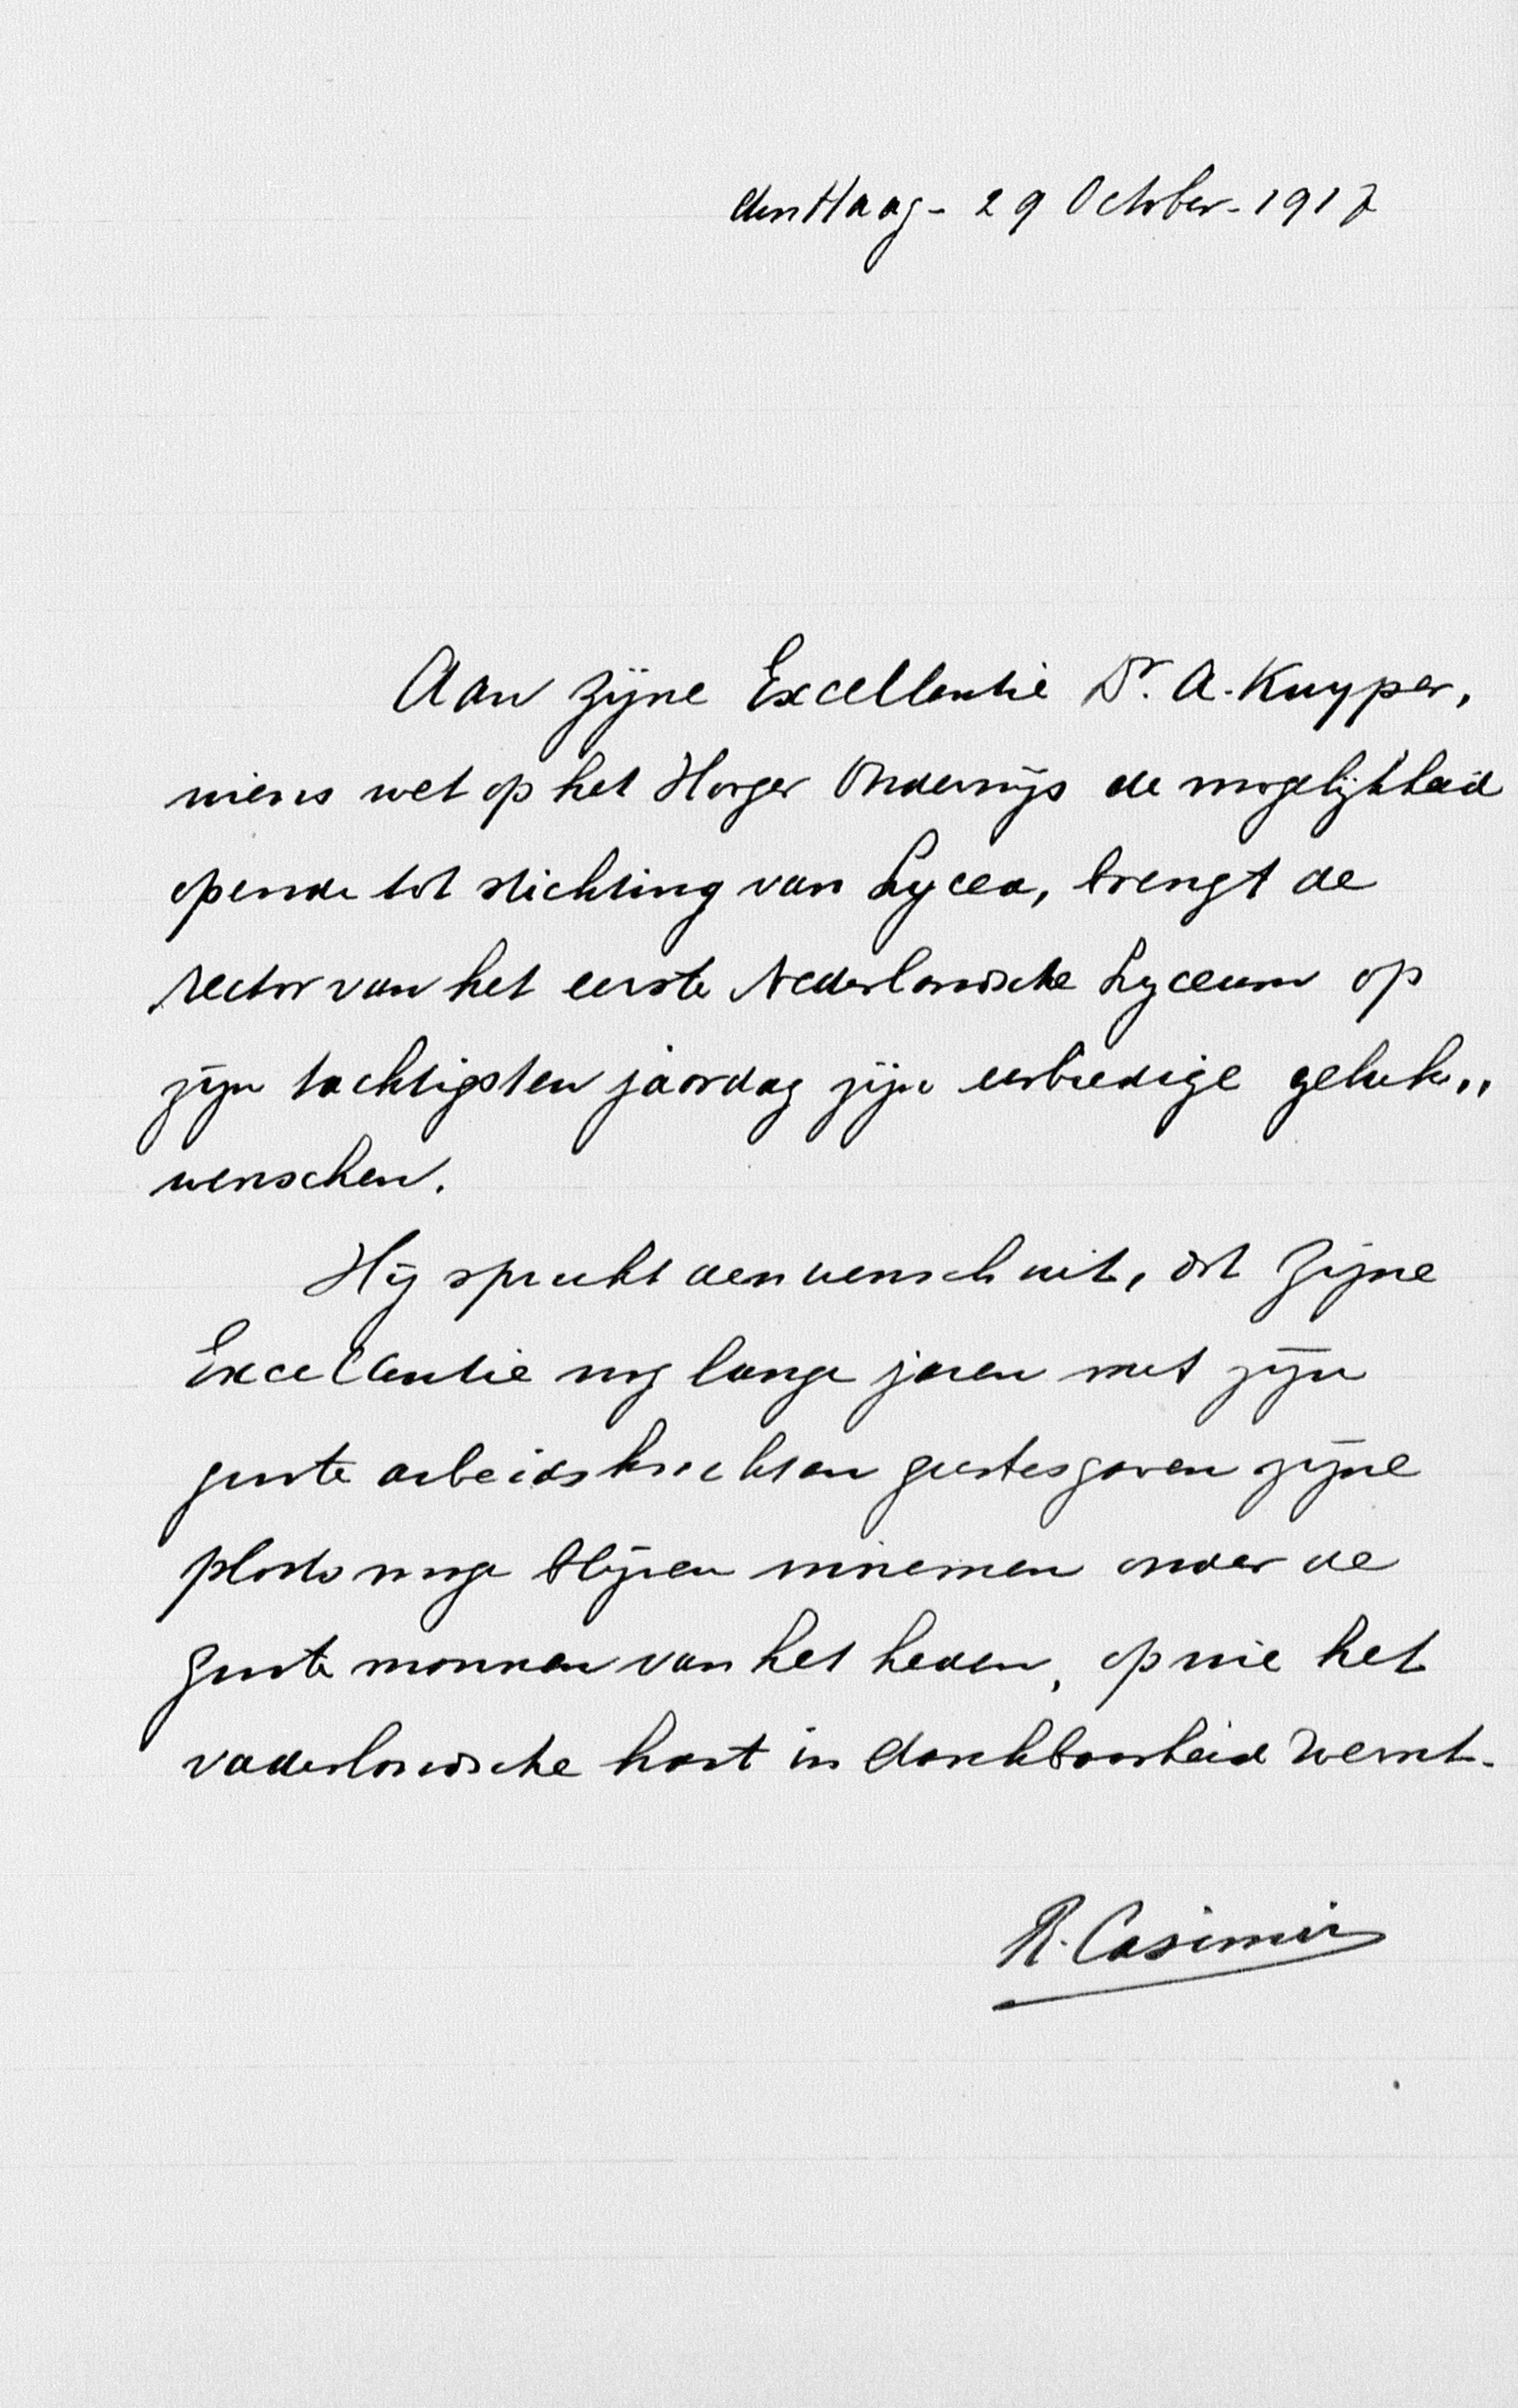 den Haag - 29 October - 1917
Aan Zijne Excellentie Dr. A. Kuyper,
wiens wet op het Hooger Onderwijs de mogelijkheid
opende tot stichting van Lycea, brengt de
rector van het eerste Nederlandsche Lyceum op
zijn tachtigsten jaardag zijn eerbiedige geluk„
wenschen.
Hij spreekt den wensch uit, dat Zijne
Excellentie nog lange jaren met zijn
groote arbeidskracht en geestesgaven zijne
plaats moge blijven innemen onder de
groote mannen van het heden, op wie het
vaderlandsche hart in dankbaarheid roemt.
R. Casimir